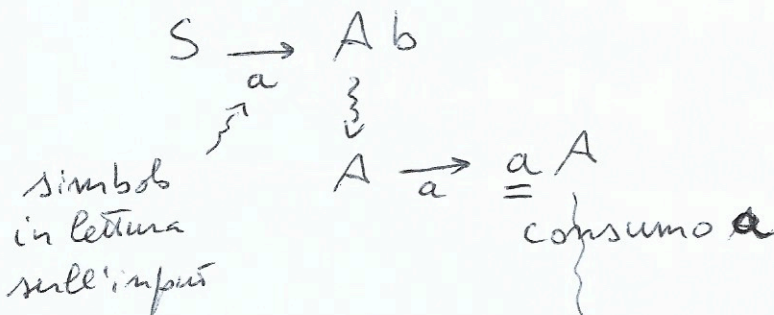 S → A b
a
A → a A
a
simbolo
in lettura
sull'input
consumo a